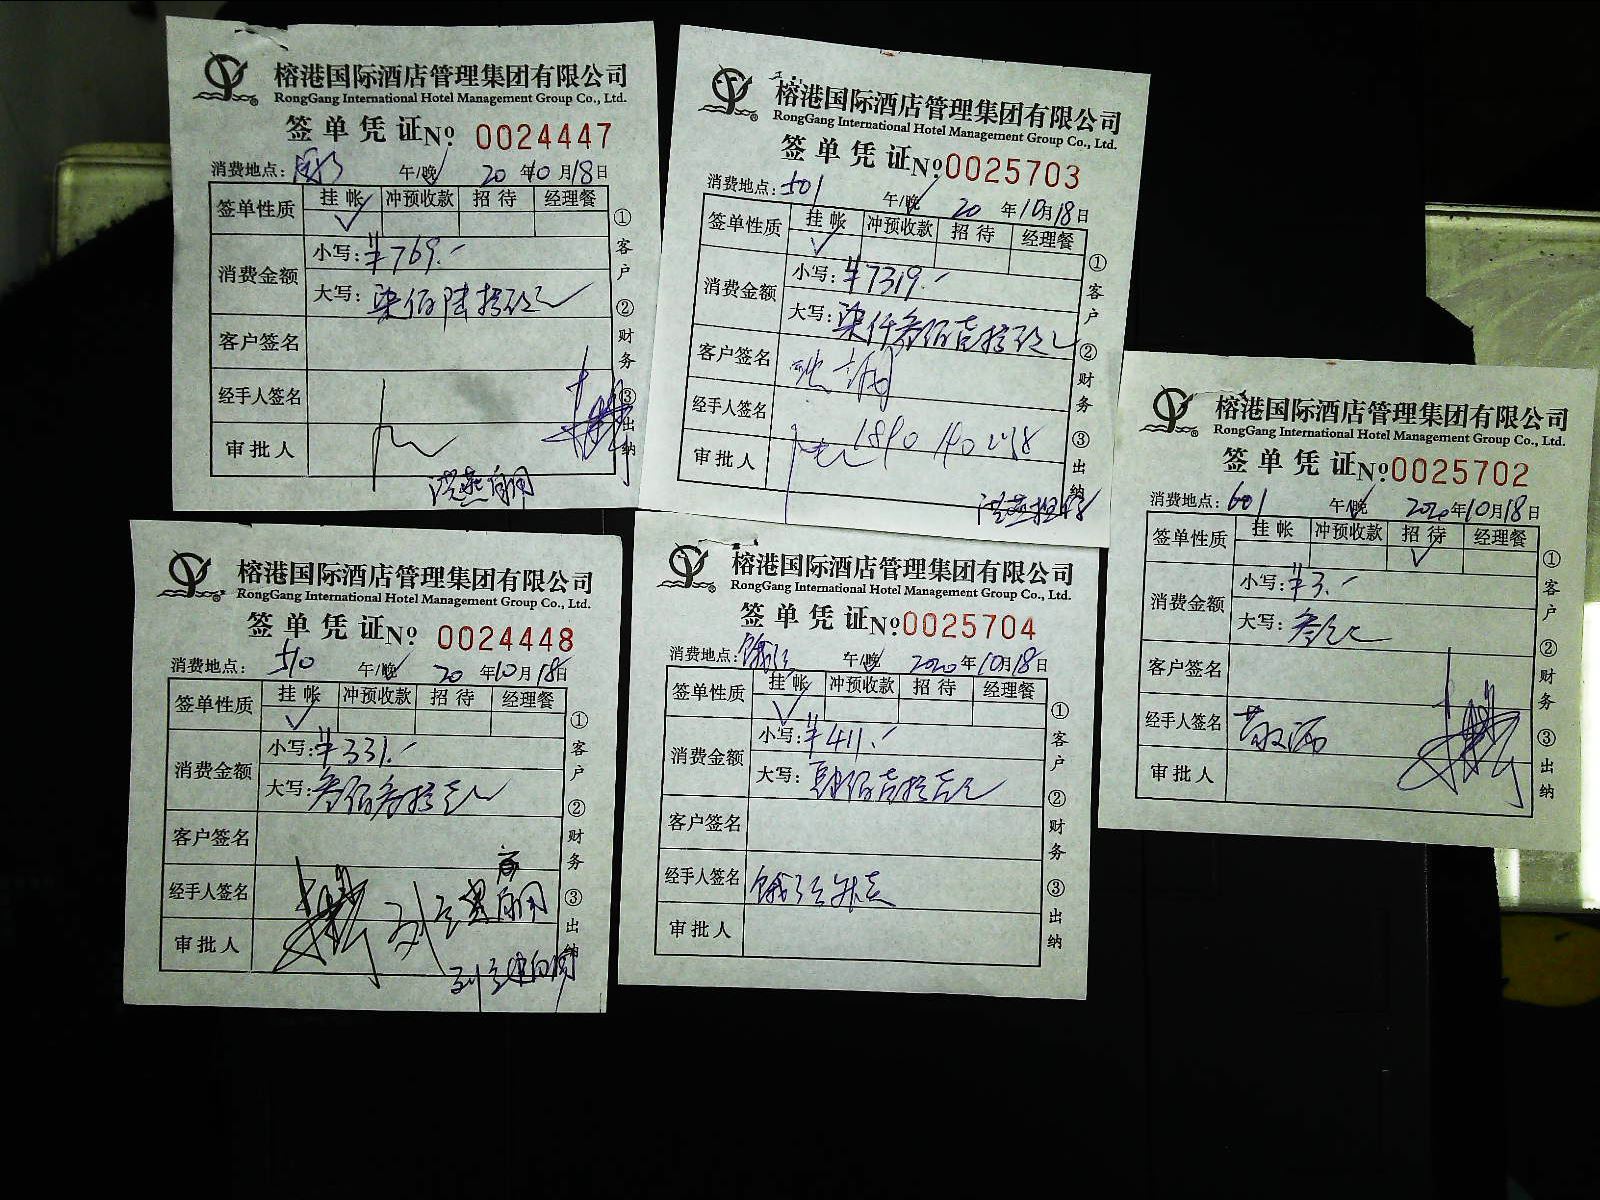 榕港国际酒店管理集团有限公司
RongGang International Hotel Management Group Co., Ltd.
签单凭证 № 0024447
消费地点: 午/晚 20 年10月18日
签单性质 挂帐 冲预收款 招待 经理餐
✓
消费金额 小写: ¥769.-
大写: 柒佰陆拾玖元
客户签名
经手人签名
审批人
①客户 ②财务 ③出纳
榕港国际酒店管理集团有限公司
RongGang International Hotel Management Group Co., Ltd.
签单凭证 № 0025703
消费地点: 501 午/晚 20 年10月18日
签单性质 挂帐 冲预收款 招待 经理餐
✓
消费金额 小写: ¥7319.-
大写: 柒仟叁佰壹拾玖元
客户签名
经手人签名
审批人
①客户 ②财务 ③出纳
榕港国际酒店管理集团有限公司
RongGang International Hotel Management Group Co., Ltd.
签单凭证 № 0025702
消费地点: 601 午/晚 2020年10月18日
签单性质 挂帐 冲预收款 招待 经理餐
✓
消费金额 小写: ¥3.-
大写: 叁元
客户签名
经手人签名
审批人
①客户 ②财务 ③出纳
榕港国际酒店管理集团有限公司
RongGang International Hotel Management Group Co., Ltd.
签单凭证 № 0024448
消费地点: 510 午/晚 20 年10月18日
签单性质 挂帐 冲预收款 招待 经理餐
✓
消费金额 小写: ¥331.-
大写: 叁佰叁拾壹元
客户签名
经手人签名
审批人
①客户 ②财务 ③出纳
榕港国际酒店管理集团有限公司
RongGang International Hotel Management Group Co., Ltd.
签单凭证 № 0025704
消费地点: 午/晚 2020年10月18日
签单性质 挂帐 冲预收款 招待 经理餐
✓
消费金额 小写: ¥411.-
大写: 肆佰壹拾壹元
客户签名
经手人签名
审批人
①客户 ②财务 ③出纳